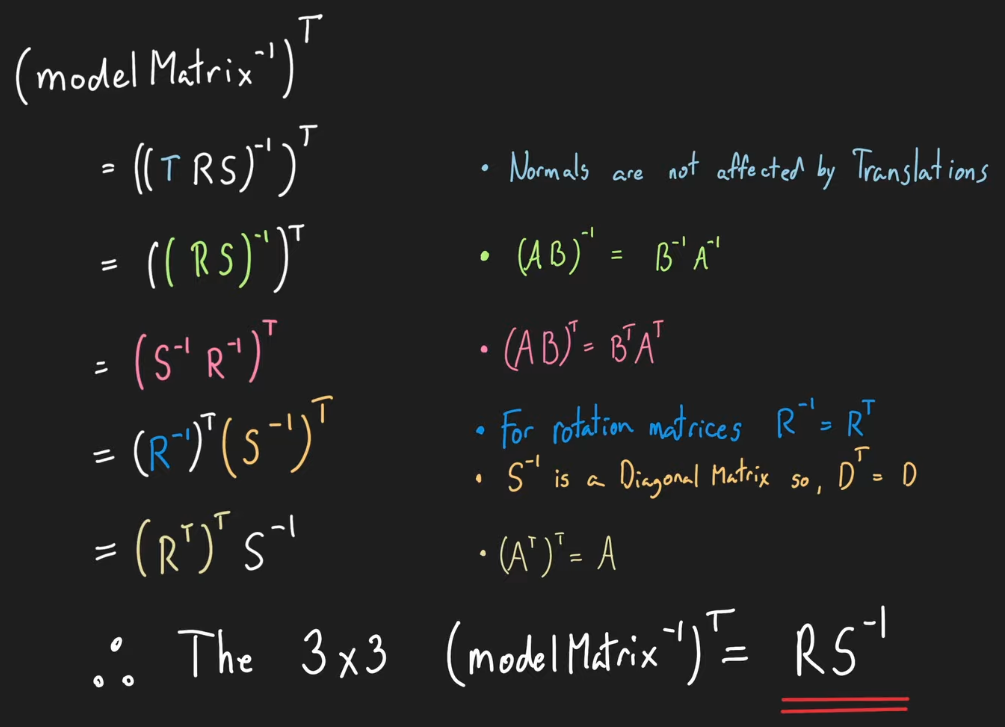 (model Matrix⁻¹)ᵀ
= ((T RS)⁻¹)ᵀ • Normals are not affected by Translations
= ((RS)⁻¹)ᵀ • (AB)⁻¹ = B⁻¹ A⁻¹
= (S⁻¹ R⁻¹)ᵀ • (AB)ᵀ = BᵀAᵀ
= (R⁻¹)ᵀ (S⁻¹)ᵀ • For rotation matrices R⁻¹ = Rᵀ
• S⁻¹ is a Diagonal Matrix so, Dᵀ = D
= (Rᵀ)ᵀ S⁻¹ • (Aᵀ)ᵀ = A
∴ The 3x3 (model Matrix⁻¹)ᵀ = RS⁻¹